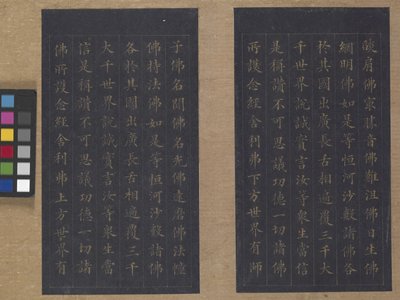 燄肩佛㝡勝音佛難沮佛日生佛
網明佛如是等恒河沙數諸佛各
於其國出廣長舌相遍覆三千大
千世界說誠實言汝等衆生當信
是稱讚不可思議功德一切諸佛
所護念經舍利弗下方世界有師
子佛名聞佛名光佛達磨佛法幢
佛持法佛如是等恒河沙數諸佛
各於其國出廣長舌相遍覆三千
大千世界說誠實言汝等衆生當
信是稱讚不可思議功德一切諸
佛所護念經舍利弗上方世界有